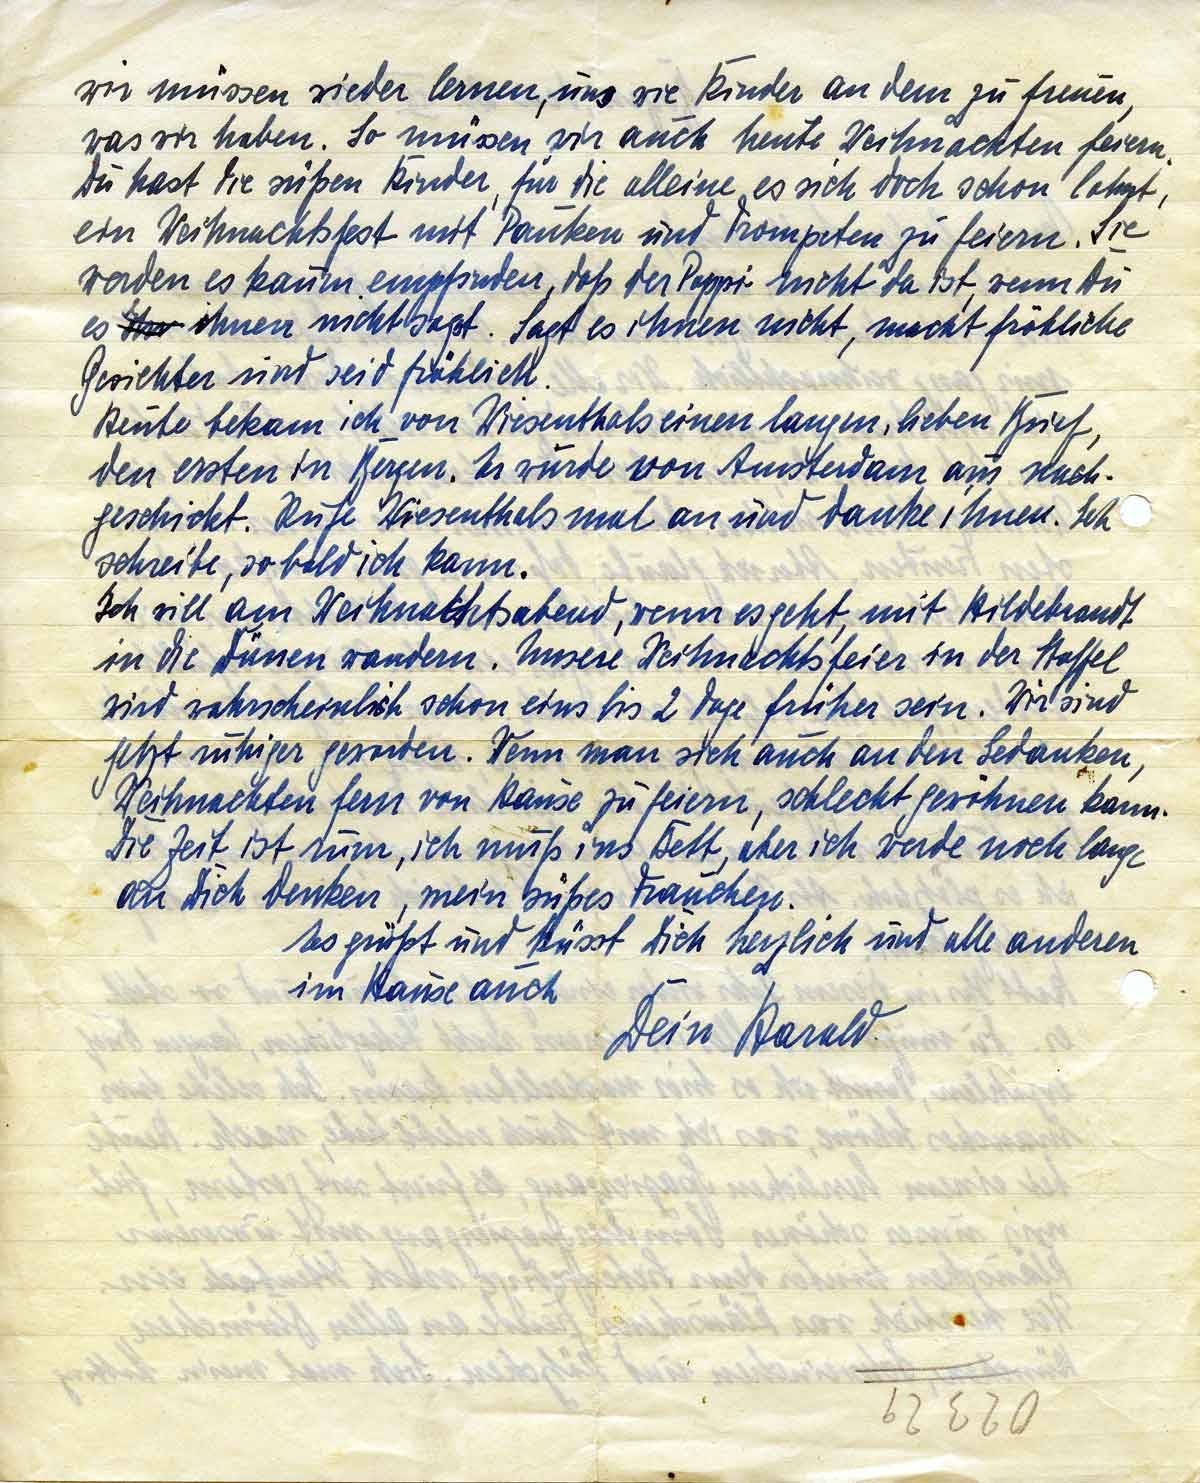 wir müssen wieder lernen, uns wie Kinder an dem zu freuen,
was wir haben. So müssen wir auch heute Weihnachten feiern.
Du hast die süßen Kinder, für die alleine es sich doch schon lohnt,
ein Weihnachtsfest mit Pauken und Trompeten zu feiern. Sie
werden es kaum empfinden, daß der Pappi nicht da ist, wenn Du
es ihnen nicht sagst. Sagt es ihnen nicht, macht fröhliche
Gesichter und seid fröhlich.
Heute bekam ich von Wiesenthals einen langen, lieben Brief,
den ersten in Bergen. Er wurde von Amsterdam aus nach-
geschickt. Rufe Wiesenthals mal an und danke ihnen. Ich
schreibe, so bald ich kann.
Ich will am Weihnachtsabend, wenn es geht, mit Hildebrandt
in die Dünen wandern. Unsere Weihnachtsfeier in der Staffel
wird wahrscheinlich schon eins bis 2 Tage früher sein. Wir sind
jetzt ruhiger geworden. Wenn man sich auch an den Gedanken,
Weihnachten fern von Hause zu feiern, schlecht gewöhnen kann.
Die Zeit ist rum, ich muß ins Bett, aber ich werde noch lange
an Dich denken, mein süßes Frauchen.
Es grüßt und küsst Dich herzlich und alle anderen
im Hause auch
Dein Harald.